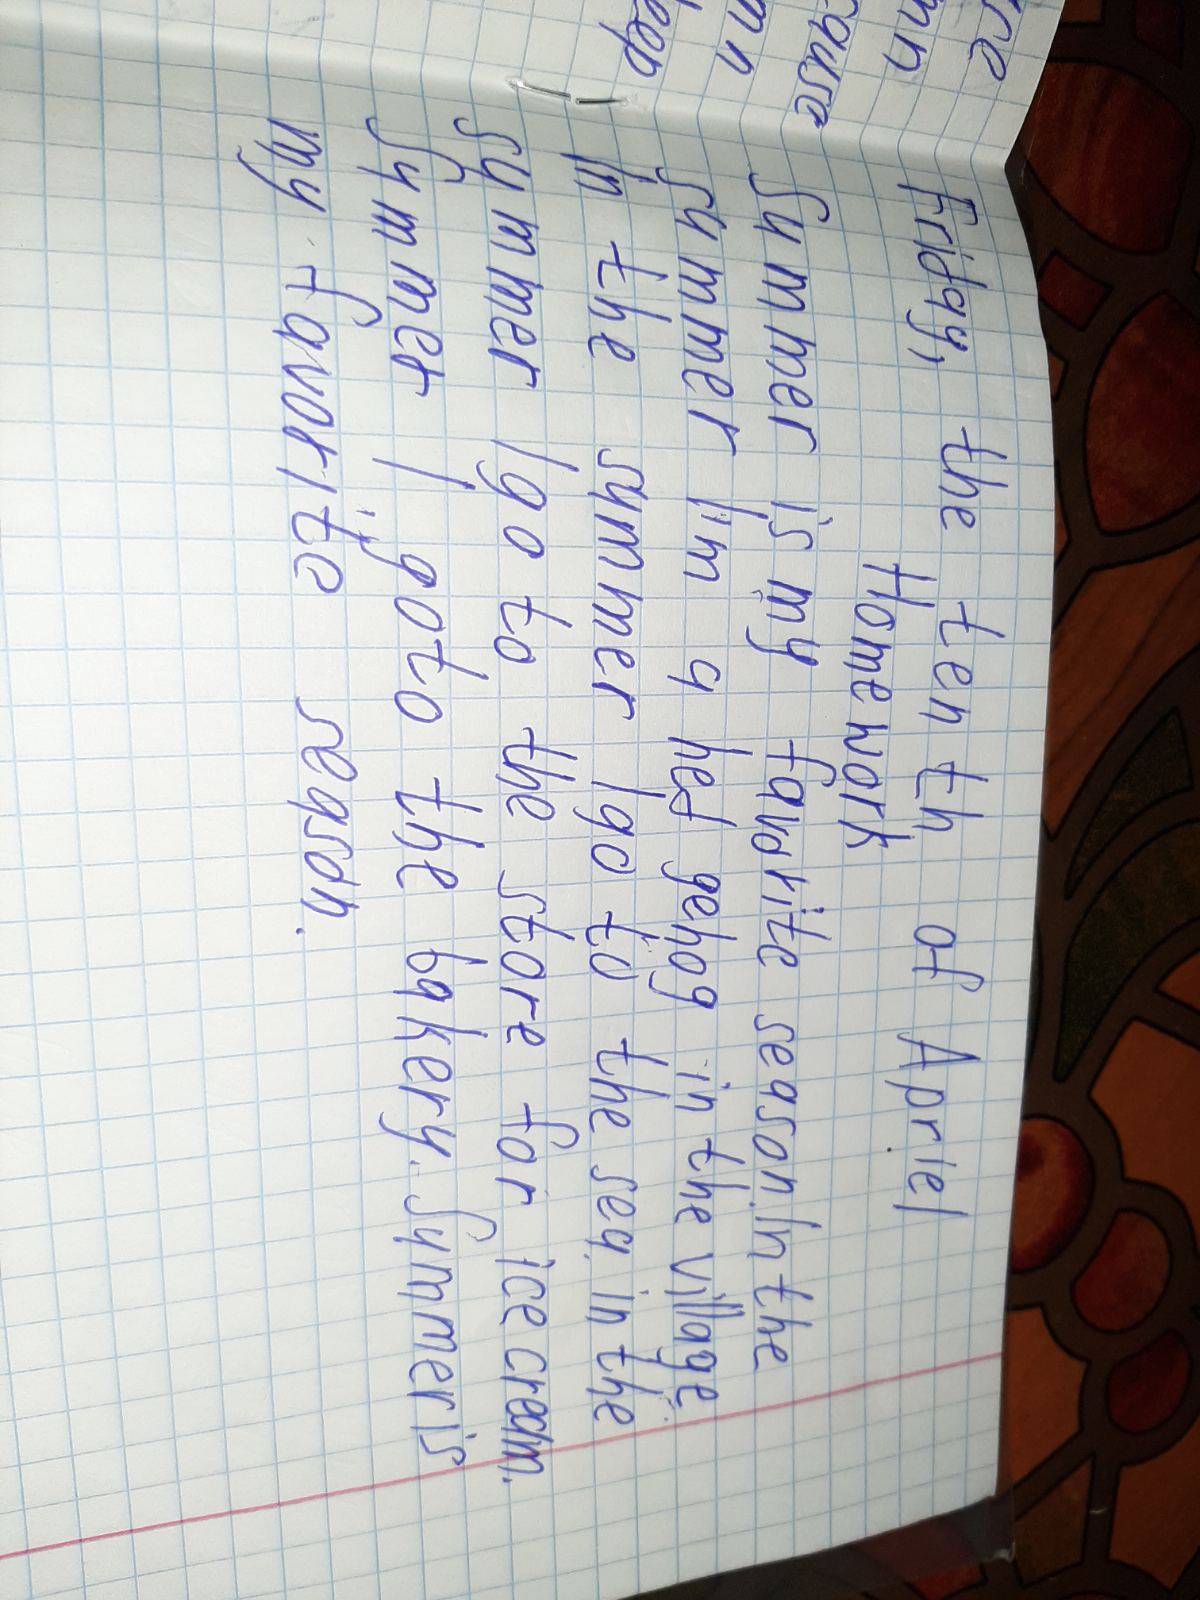 Fridgy, the tenth of Apriel
Homework
Symmer is my favorite season. In the
symmer I'm a hedgehog in the village
In the symmer I go to the sea. in the
symmer I go to the store for ice cream.
Symmer I go to the bakery. Symmer is
my favorite season.